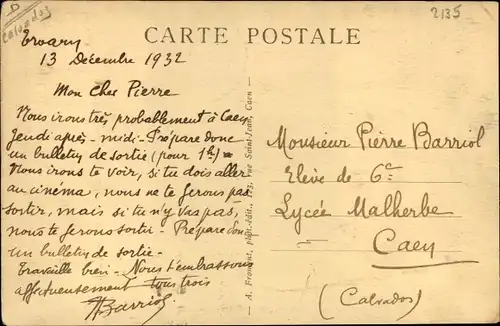 D
Calvados
2135
CARTE POSTALE
Evarcy
13 Décembre 1932
Mon Cher Pierre
Nous irons très probablement à Caen
Jeudi après-midi - Prépare donc
un bulletin de sortie (pour 1h) -
Nous irons te voir, si tu dois aller
au cinéma, nous ne te ferons pas
sortir, mais si tu n'y vas pas,
nous te ferons sortir - Prépare donc
un bulletin de sortie -
Travaille bien - Nous t'embrassons
affectueusement tous trois
Barriol
A. Fromont, phot.-édit., rue Saint-Jean, Caen
Monsieur Pierre Barriol
Elève de 6e
Lycée Malherbe
Caen
(Calvados)